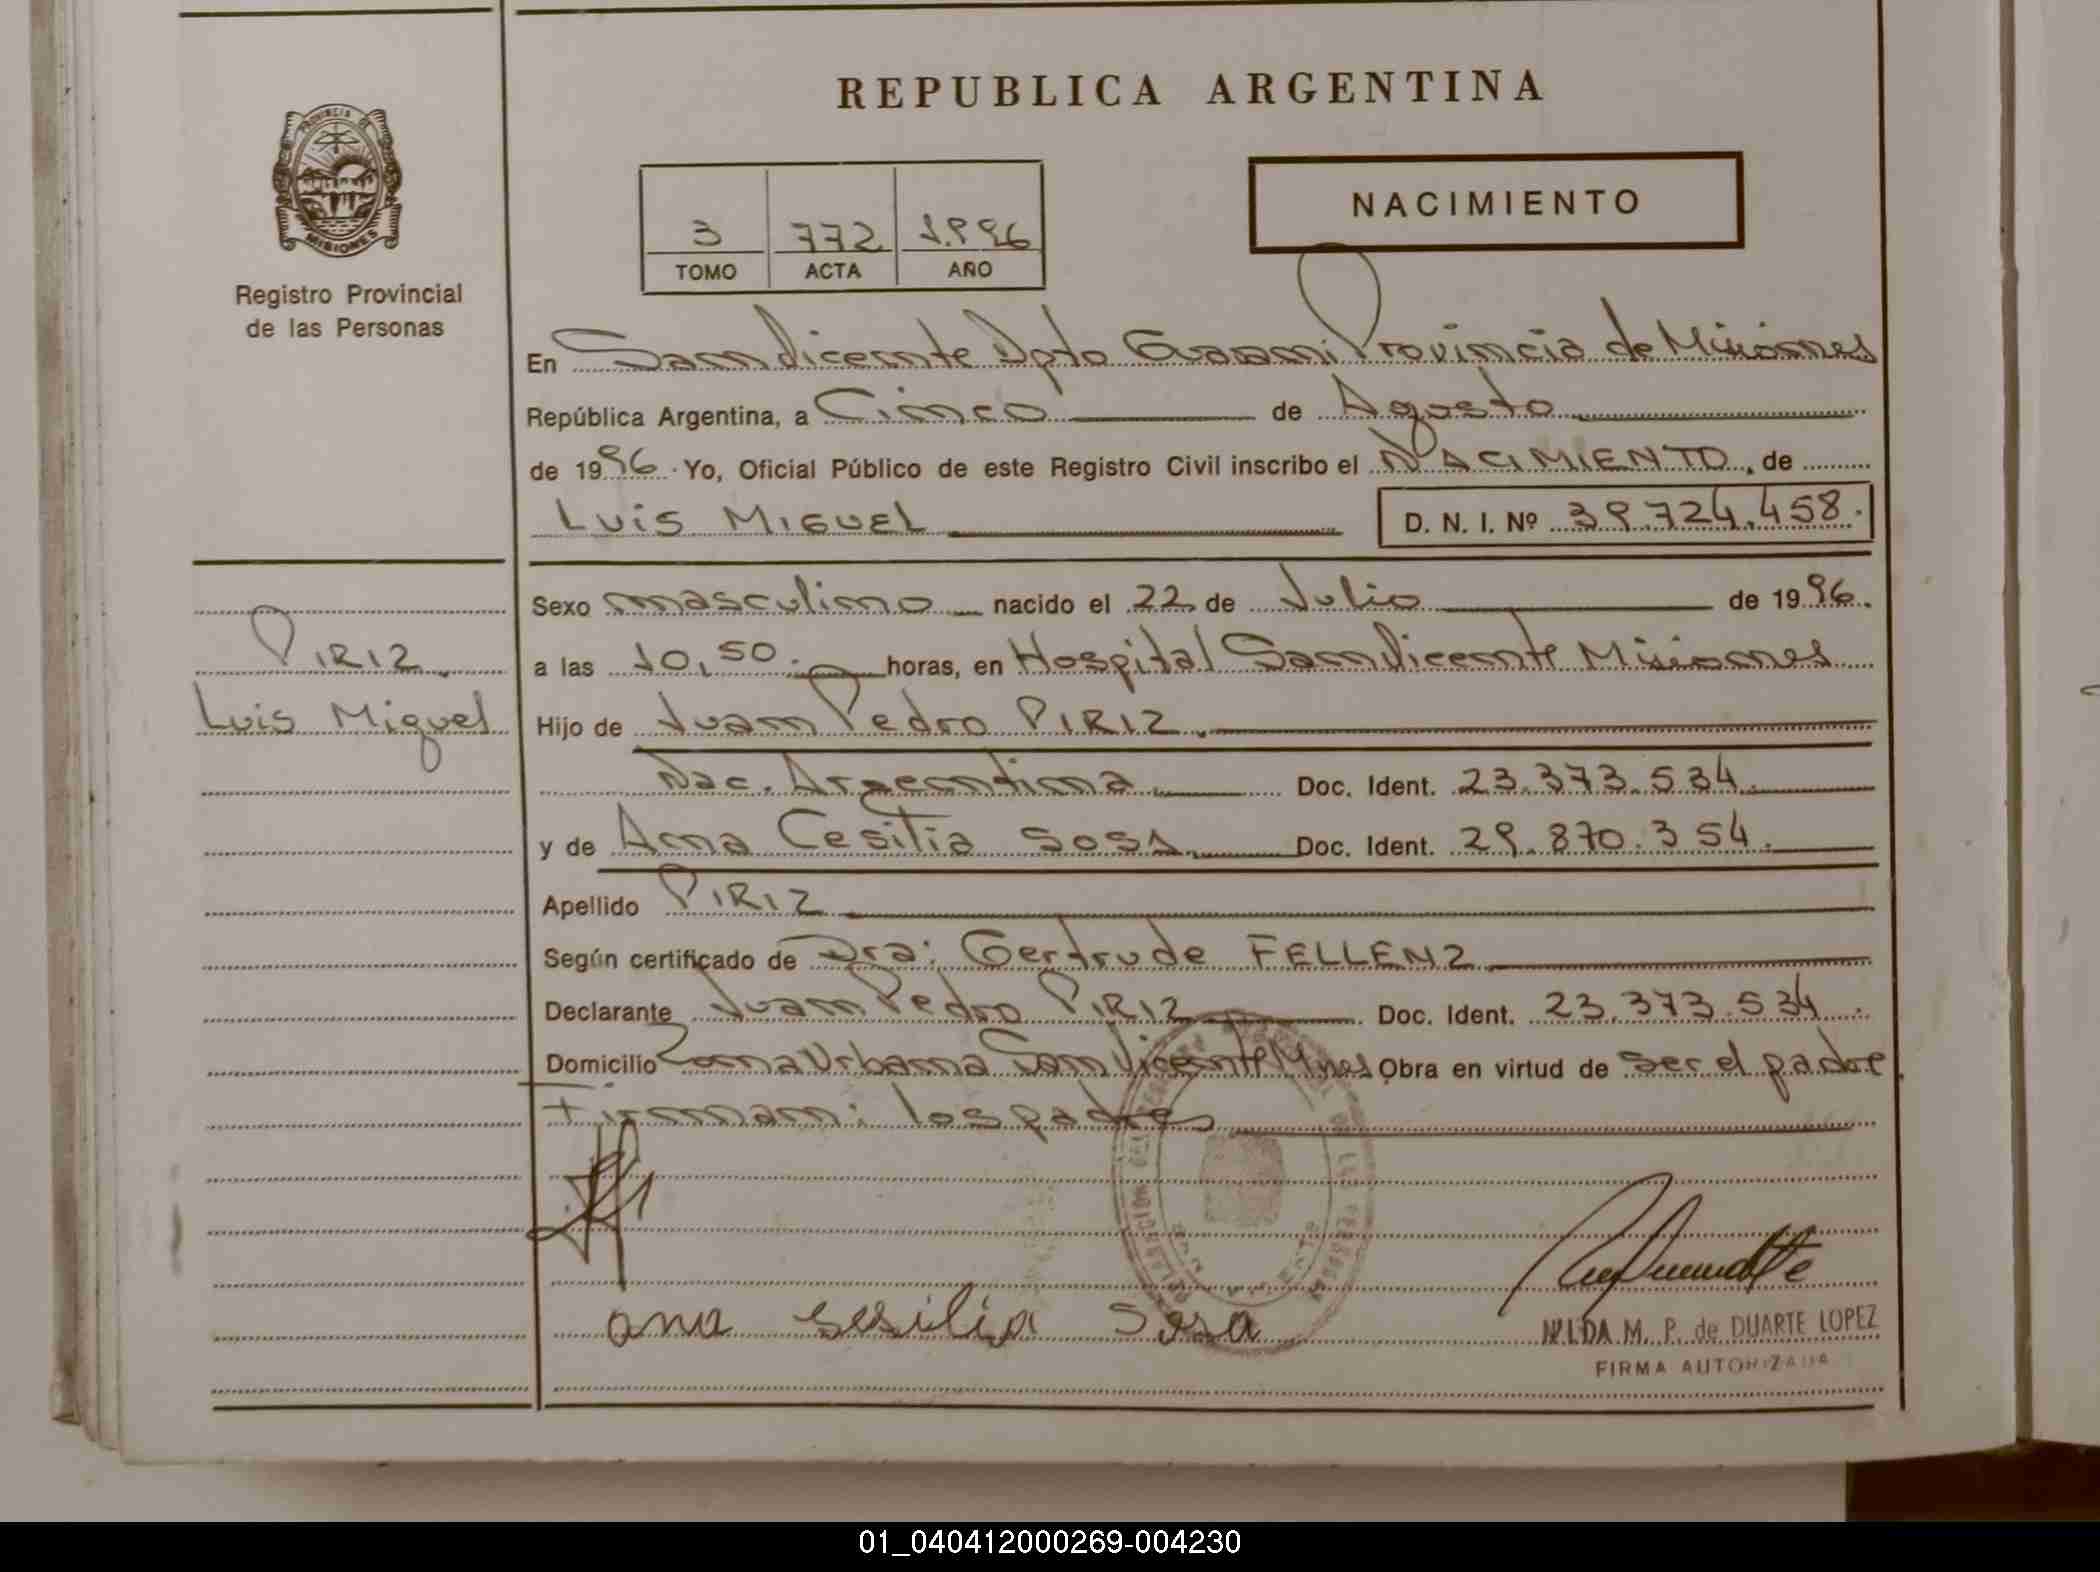 REPUBLICA ARGENTINA
PROVINCIA DE
MISIONES
Registro Provincial
de las Personas
3 772 1.996
TOMO ACTA AÑO
NACIMIENTO
En San Vicente Dpto Guarani Provincia de Misiones
República Argentina, a Cinco de Agosto
de 1996. Yo, Oficial Público de este Registro Civil inscribo el NACIMIENTO, de
LUIS MIGUEL D. N. I. Nº 39.724.458.
Sexo masculino nacido el 22 de Julio de 1996.
a las 10,50. horas, en Hospital San Vicente Misiones
Hijo de Juan Pedro PIRIZ.
Nac. Argentina. Doc. Ident. 23.373.534.
y de Ana Cesilia SOSA. Doc. Ident. 29.870.354.
Apellido PIRIZ
Según certificado de Dra: Gertrude FELLENZ
Declarante Juan Pedro PIRIZ Doc. Ident. 23.373.534.
Domicilio Zona Urbana San Vicente Mnes Obra en virtud de ser el padre.
Firman: los padres
PIRIZ
Luis Miguel
ana sesilia Sosa
NILDA M. P. de DUARTE LOPEZ
FIRMA AUTORIZADA
01_040412000269-004230